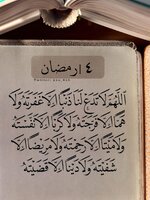 ٤ ارمضان
اللَّهُمَّ لَا تَدَعْ لَنَا ذَنْبًا إِلَّا غَفَرْتَهُ وَلَا
هَمًّا إِلَّا فَرَّجْتَهُ وَلَا كَرْبًا إِلَّا نَفَّسْتَهُ
وَلَا مَيِّتًا إِلَّا رَحِمْتَهُ وَلَا مَرِيضًا إِلَّا
شَفَيْتَهُ وَلَا دَيْنًا إِلَّا قَضَيْتَهُ